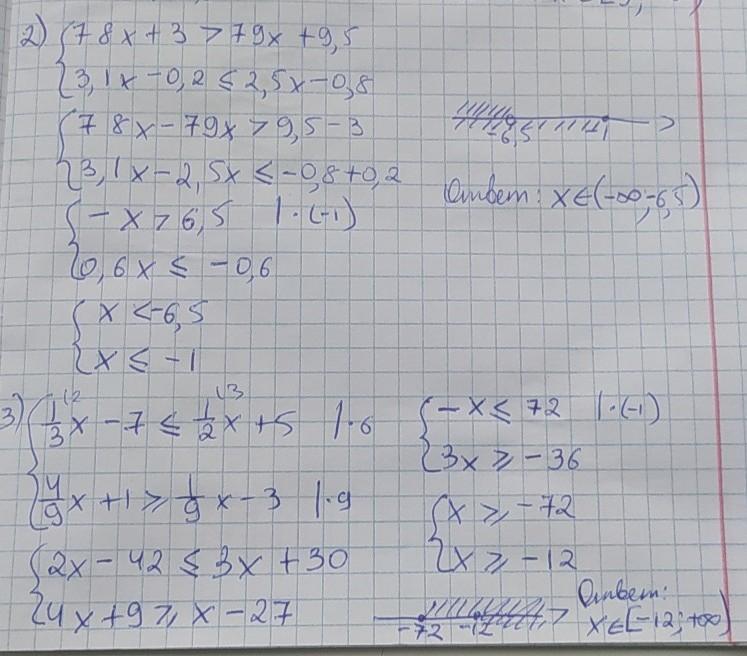 2) { 78x + 3 > 79x + 9,5
3,1x - 0,2 ≤ 2,5x - 0,8
{ 78x - 79x > 9,5 - 3
3,1x - 2,5x ≤ -0,8 + 0,2
{ - x > 6,5 | · (-1)
0,6x ≤ -0,6
{ x < -6,5
x ≤ -1
-6,5 -1
Ответ: x ∈ (-∞; -6,5)
3) { 1/3 x - 7 ≤ 1/2 x + 5 | · 6
4/9 x + 1 ≥ 1/9 x - 3 | · 9
{ 2x - 42 ≤ 3x + 30
4x + 9 ≥ x - 27
{ - x ≤ 72 | · (-1)
3x ≥ -36
{ x ≥ -72
x ≥ -12
-72 -12
Ответ:
x ∈ [-12; +∞)